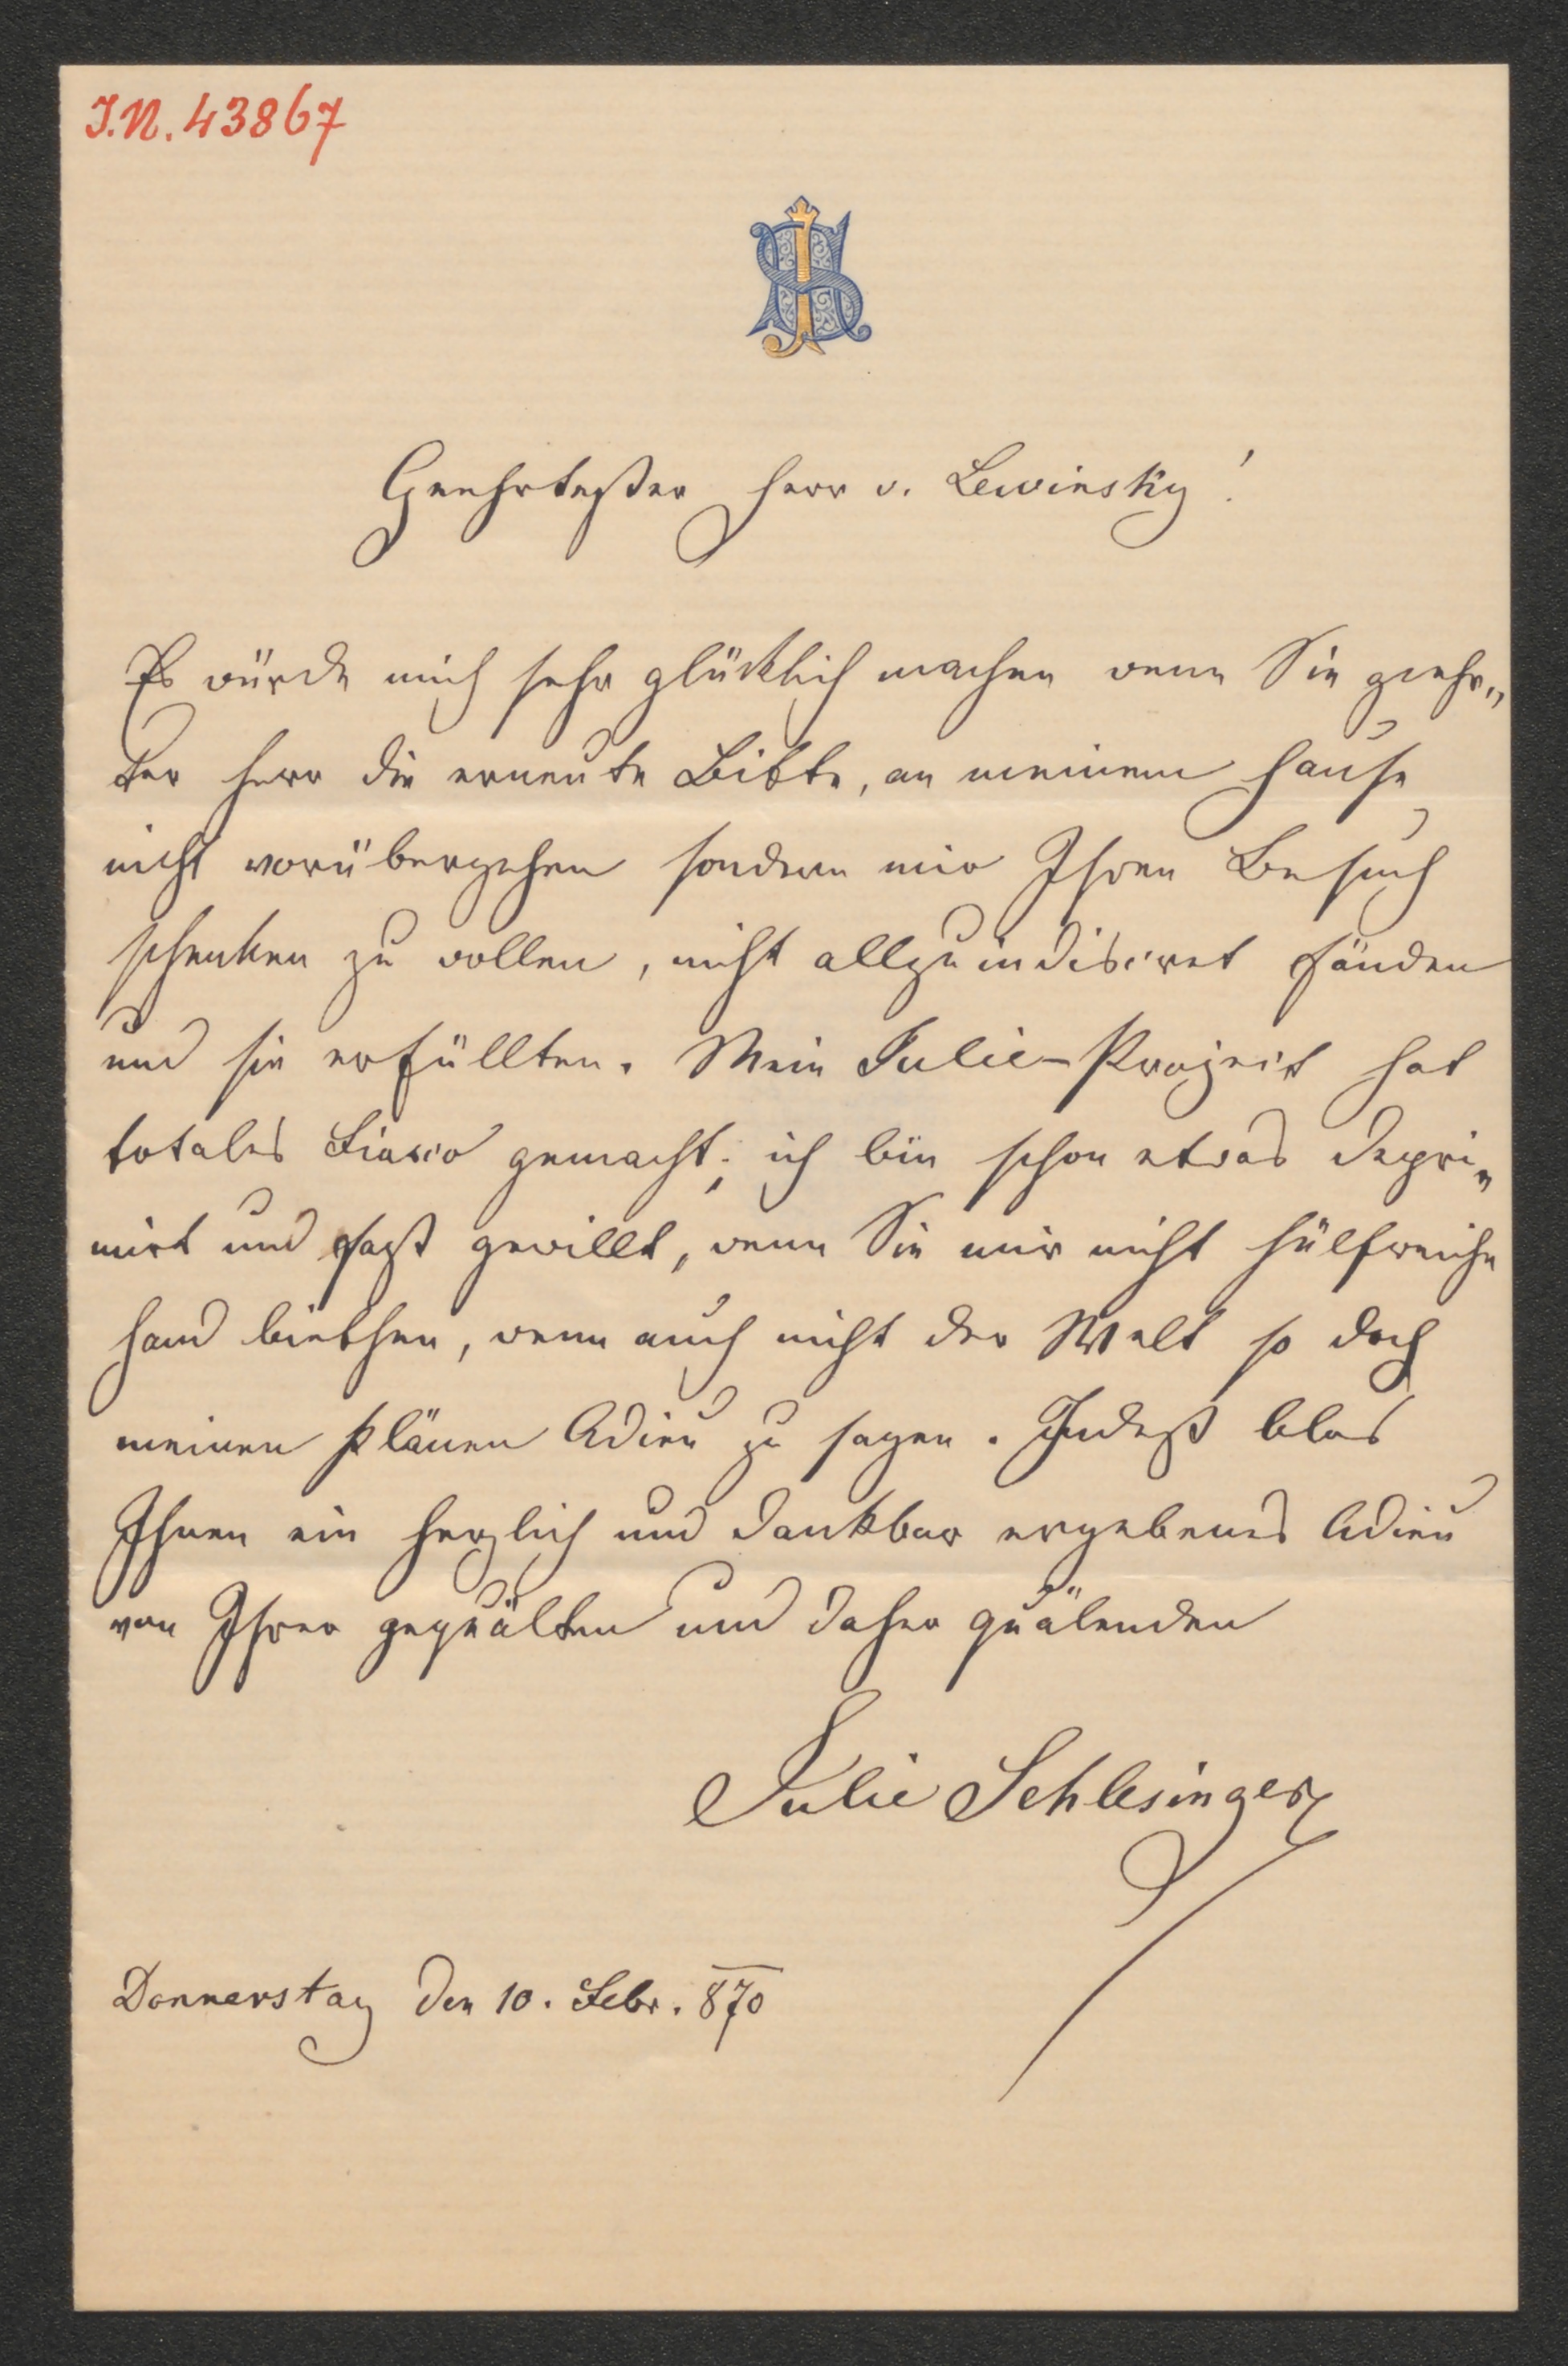 I.N. 43867
JS
Geehrtester Herr v. Lewinsky!
Es würde mich sehr glücklich machen wenn Sie geehr„
ter Herr die erneute Bitte, an meinem Hause
nicht vorübergehen sondern mir Ihren Besuch
schenken zu wollen, nicht allzu indiscret fänden
und sie erfüllten. Mein Julie-Project hat
totales Fiasco gemacht; ich bin schon etwas depri„
mirt und fast gewillt, wenn Sie mir nicht hülfreiche
Hand biethen, wenn auch nicht der Welt so doch
meinen Plänen Adieu zu sagen. Indeß blos
Ihnen ein herzlich und dankbar ergebenes Adieu
von Ihrer gequälten und daher quälenden
Julie Schlesinger
Donnerstag den 10. Febr. 870